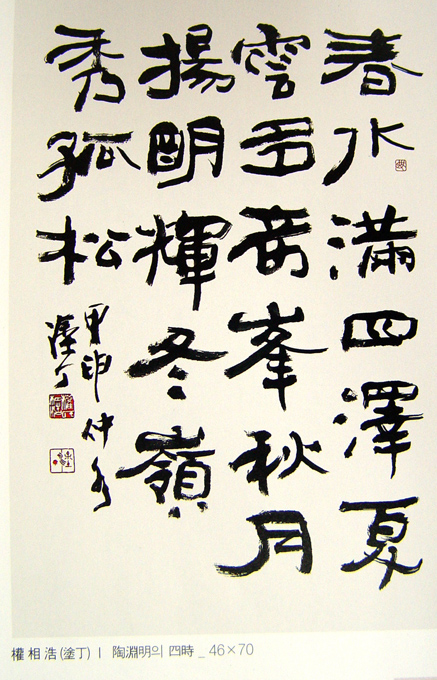 春水滿四澤夏
雲多奇峯秋月
揚明輝冬嶺
秀孤松
甲申仲冬
塗丁
權相浩(塗丁) ㅣ 陶淵明의 四時 _ 46×70